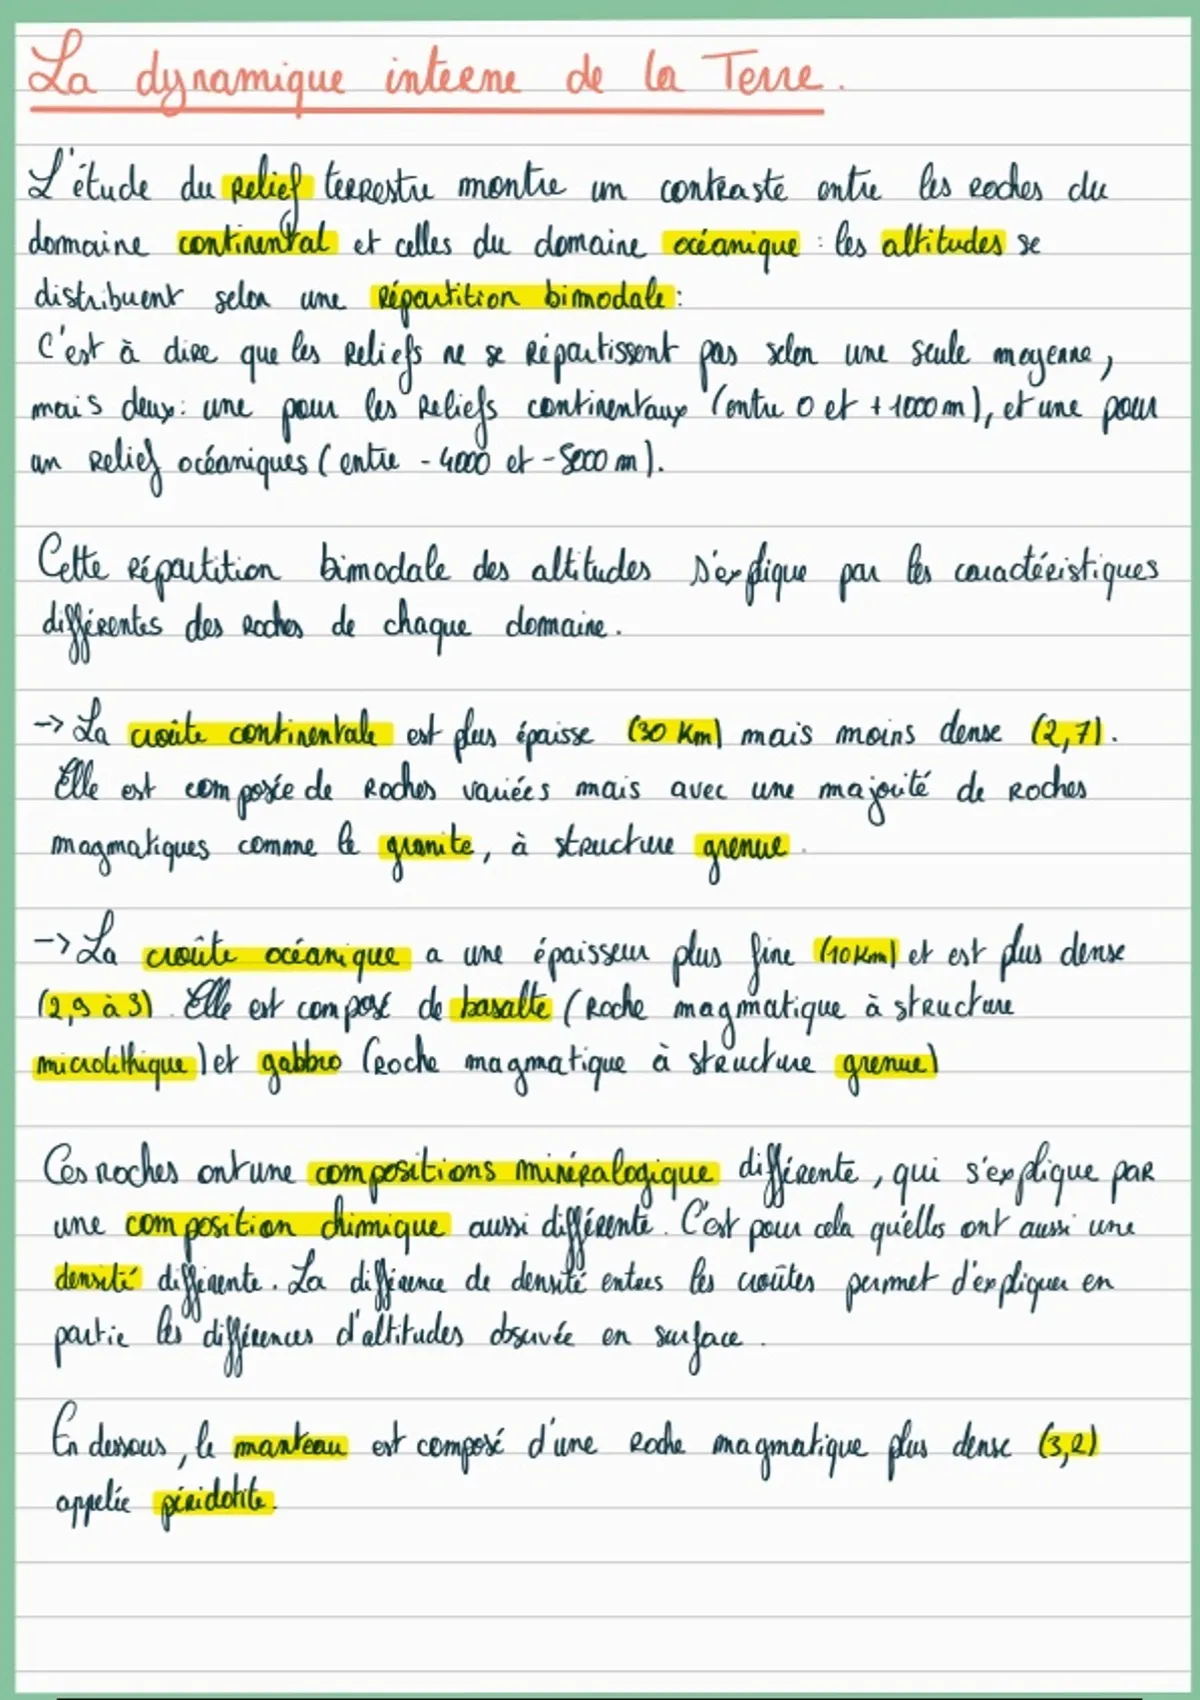 La dynamique interne de la Terre.
L'étude du relief terrestre montre un contraste entre les roches du
domaine continental et celles du domaine océanique : les altitudes se
distribuent selon une répartition bimodale :
C'est à dire que les reliefs ne se répartissent pas selon une seule moyenne,
mais deux : une pour les reliefs continentaux (entre 0 et + 1000 m), et une pour
un relief océaniques (entre - 4000 et - 5000 m).
Cette répartition bimodale des altitudes s'explique par les caractéristiques
différentes des roches de chaque domaine.
-> La croûte continentale est plus épaisse (30 Km) mais moins dense (2,7).
Elle est composée de roches variées mais avec une majorité de roches
magmatiques comme le granite, à structure grenue.
-> La croûte océanique a une épaisseur plus fine (10 Km) et est plus dense
(2,9 à 3). Elle est composé de basalte (roche magmatique à structure
microlithique) et gabbro (roche magmatique à structure grenue)
Ces roches ont une compositions minéralogique différente, qui s'explique par
une composition chimique aussi différente. C'est pour cela qu'elles ont aussi une
densité différente. La différence de densité entres les croûtes permet d'expliquer en
partie les différences d'altitudes observée en surface.
En dessous, le manteau est composé d'une roche magmatique plus dense (3,2)
appelée péridotite.